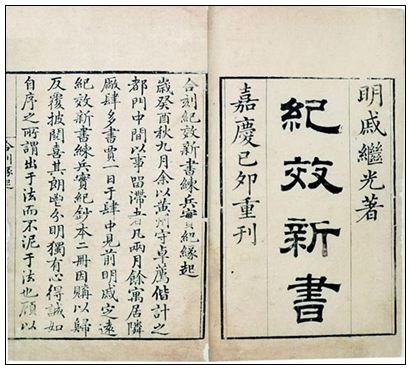 明戚繼光著
紀效新書
嘉慶己卯重刊
合刻紀效新書練兵實紀緣起
歲癸酉秋九月余以黃州守卓薦偕計之
都門中間以事留滯者凡兩月餘寓居隣
廠肆多書賈一日于肆中見前明戚定遠
紀效新書練兵實紀鈔本二冊因購以歸
反覆披閱喜其朗豁分明獨有心得誠如
自序之所謂出于法而不泥于法也顧以